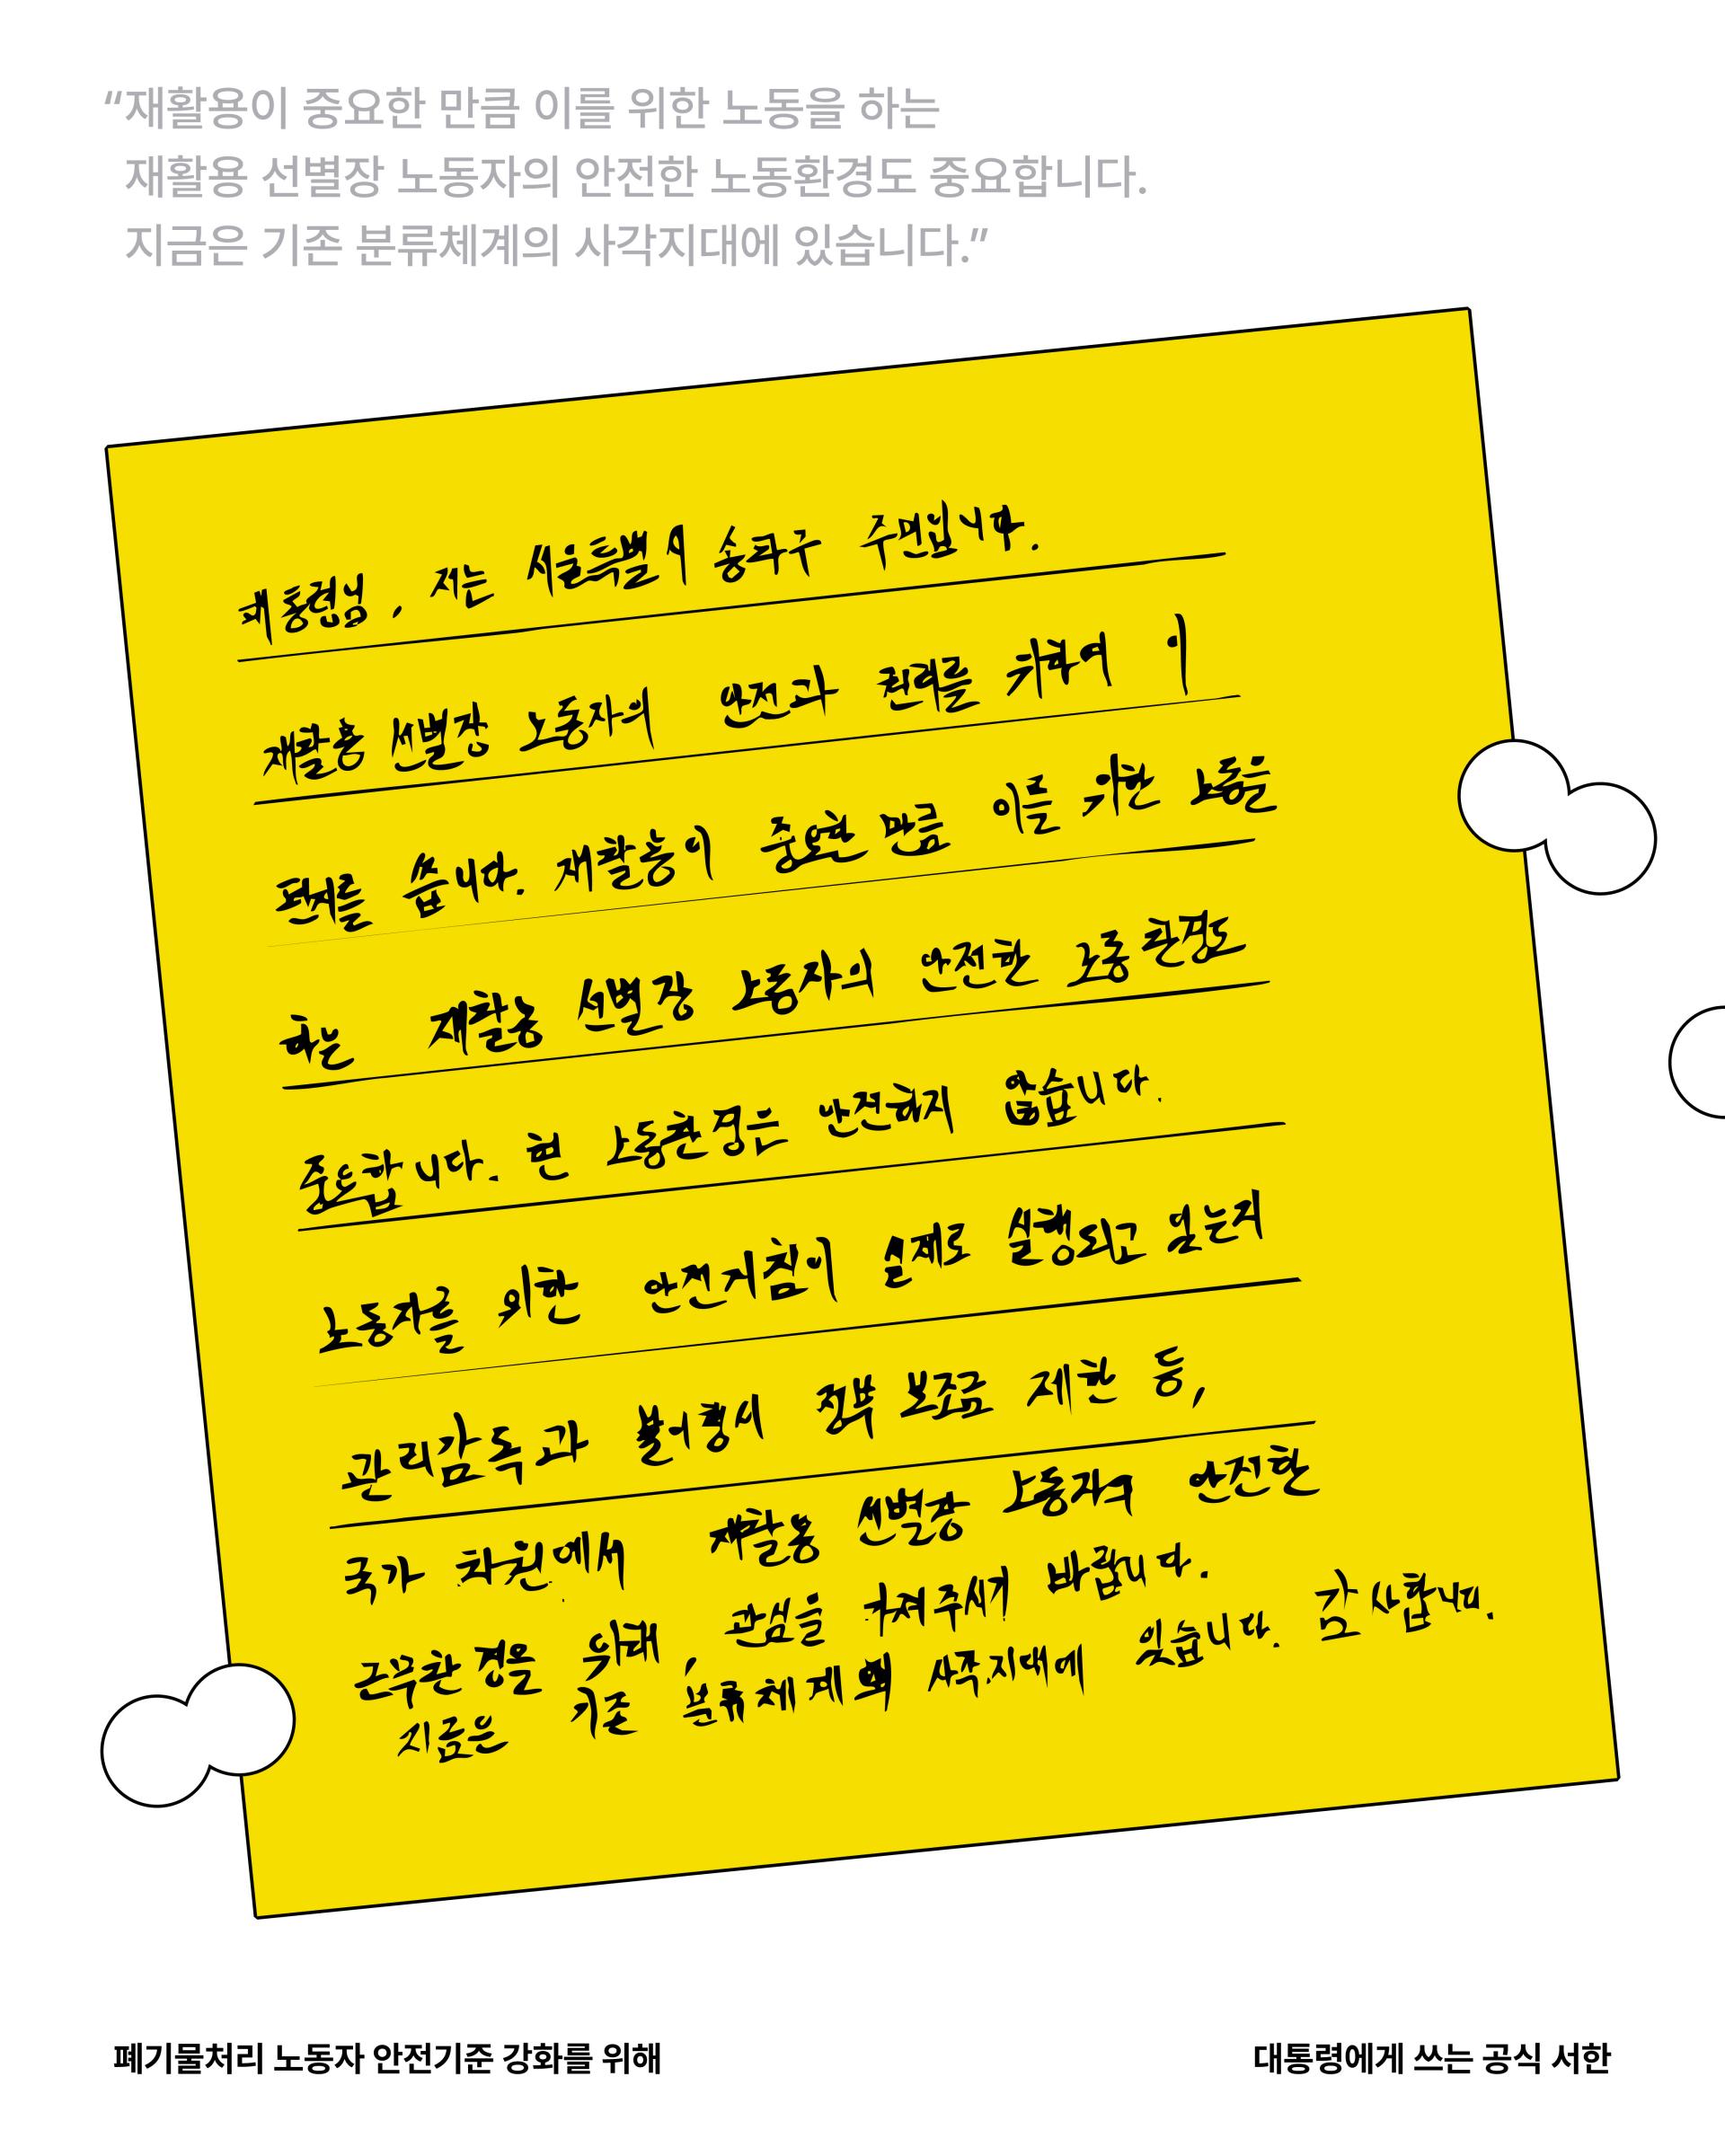 “재활용이 중요한 만큼 이를 위한 노동을 하는
재활용 선별장 노동자의 안전한 노동환경도 중요합니다.
지금은 기존 분류체계의 사각지대에 있습니다.”
대통령님, 저는 서울특별시 송파구 주민입니다.
재활용 선별장 노동자의 안전과 권리를 위하여 이
편지를 씁니다. 재활용이 중요한 만큼 이를 위한 노동을
하는 재활용 선별장 노동자의 안전한 노동환경도
중요합니다. 현 노동환경은 안전하지 않습니다.
노동자를 위한 안전지침이 실제로 실행되고 있는지
관리감독과 불이행시 정부 보조금 제한 등,
국가 차원에서 재활용 선별장 노동자의 안전한
근무환경을 위해, 관심을 가져주시기 바랍니다.
지금은 기존 분류체계의 사각지대에 있습니다. 감사합니다.
폐기물처리 노동자 안전기준 강화를 위해
대통령에게 쓰는 공식 서한